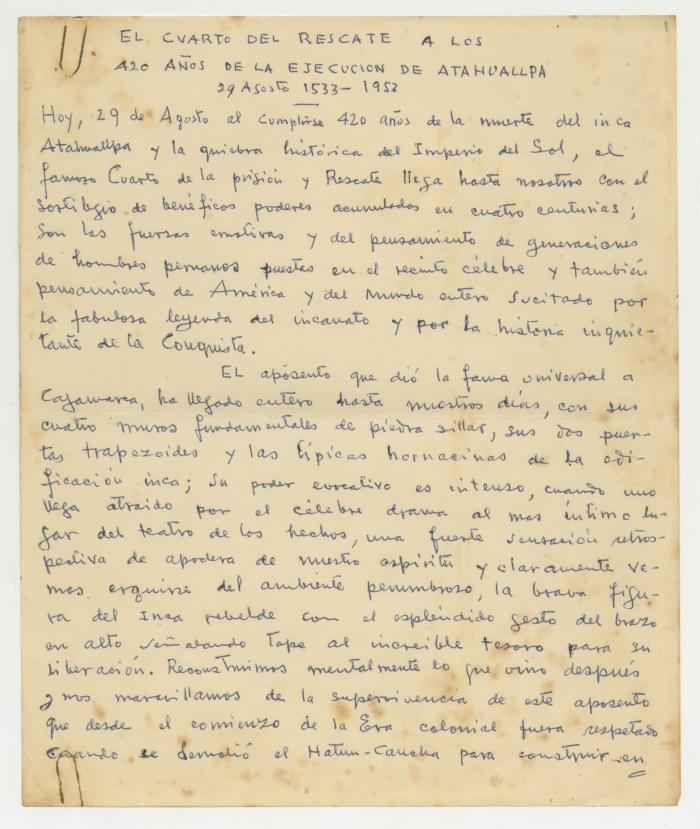 1
EL CUARTO DEL RESCATE A LOS
420 AÑOS DE LA EJECUCION DE ATAHUALLPA
29 Agosto 1533-1953
Hoy, 29 de Agosto al cumplirse 420 años de la muerte del inca
Atahuallpa y la quiebra histórica del Imperio del Sol, el
famoso Cuarto de la prisión y Rescate llega hasta nosotros con el
sortilegio de benéficos poderes acumulados en cuatro centurias;
son las fuerzas emotivas y del pensamiento de generaciones
de hombres peruanos puestas en el recinto célebre y también
pensamiento de América y del Mundo entero sucitado por
la fabulosa leyenda del incanato y por la historia inquie-
tante de la Conquista.
El aposento que dió la fama universal a
Cajamarca, ha llegado entero hasta nuestros días, con sus
cuatro muros fundamentales de piedra sillar, sus dos puer-
tas trapezoides y las típicas hornacinas de la edi-
ficación inca; su poder evocativo es intenso, cuando uno
llega atraido por el célebre drama al mas íntimo lu-
gar del teatro de los hechos, una fuerte sensación retros-
pectiva se apodera de nuestro espíritu y claramente ve-
mos erguirse del ambiente penumbroso, la brava figu-
ra del Inca rebelde con el espléndido gesto del brazo
en alto señalando tope al increible tesoro para su
liberación. Reconstruimos mentalmente lo que vino después
y nos maravillamos de la supervivencia de este aposento
que desde el comienzo de la Era colonial fuera respetado
cuando se demolió el Hatun-Cancha para construir en